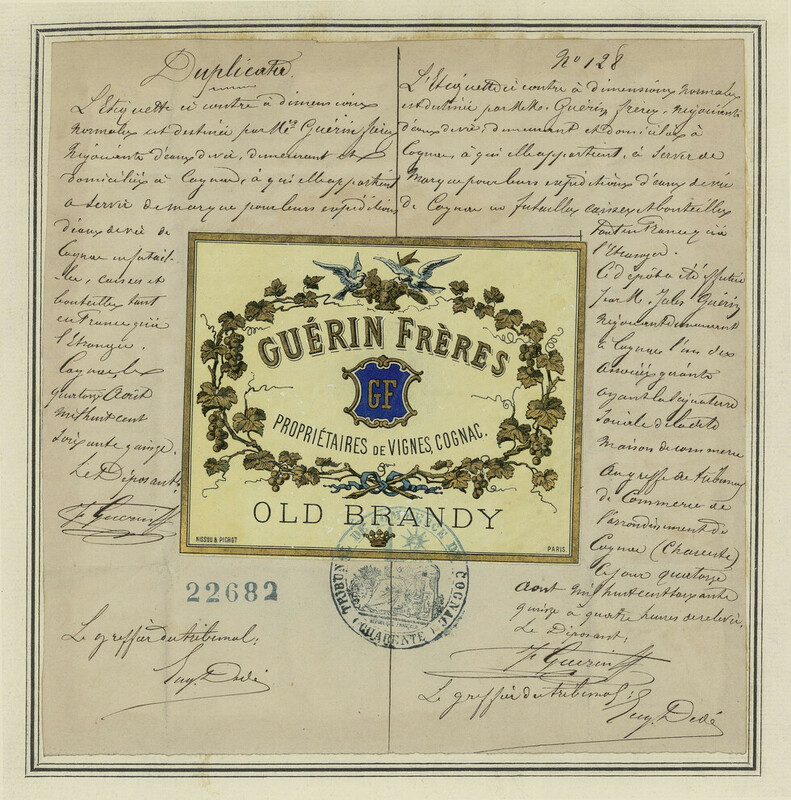 Duplicata.
L'Etiquette ci contre à dimensions
normales est destinée par Mrs Guérin frères
Négociants d'eaux de vie, demeurant et
domiciliés à Cognac, à qui elle appartient
à servir de marque pour leurs expéditions
d'eaux de vie de
Cognac en futail-
-les, caisses et
bouteilles tant
en France qu'à
l'Etranger.
Cognac le
quatorze Août
mil huit cent
soixante quinze.
Le Déposant:
J. Guérin
22682
Le greffier du tribunal:
Eug. Dedé
No 128
L'Etiquette ci contre à dimensions normales
est destinée par M.M. Guérin frères, négociants
d'eaux de vie, demeurant et domiciliés à
Cognac, à qui elle appartient, à servir de
Marque pour leurs expéditions d'eaux de vie
de Cognac en futailles caisses et bouteilles
tant en France qu'à
l'Etranger.
Ce dépôt a été effectué
par M. Jules Guérin
Négociant demeurant
à Cognac l'un des
associés gérants
ayant la signature
sociale de la dite
Maison de commerce
au greffe du tribunal
de Commerce de
l'arrondissement de
Cognac (Charente)
ce jour quatorze
août mil huit cent soixante
quinze à quatre heures de relevée.
Le Déposant:
J. Guérin
Le greffier du tribunal:
Eug. Dedé
GUÉRIN FRÈRES
GF
PROPRIÉTAIRES DE VIGNES, COGNAC.
OLD BRANDY
NISSOU & PICHOT
PARIS.
TRIBUNAL DE COMMERCE DE COGNAC
(CHARENTE)